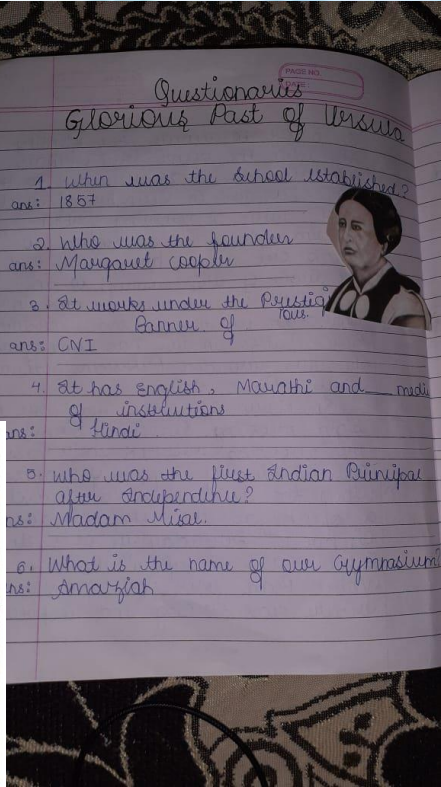 PAGE NO.
DATE
Questionaries
Glorious Past of Ursula
1. When was the School established?
ans: 1857
2. Who was the founder
ans: Margaret cooper
3. It works under the Prestigi
ious.
Banner of
ans: CNI
4. It has English, Marathi and __ medi
of instructions
ans: Hindi
5. Who was the first Indian Principal
after Independence?
ns: Madam Misal.
6. What is the name of our Gymnasium?
ns: Amaziah